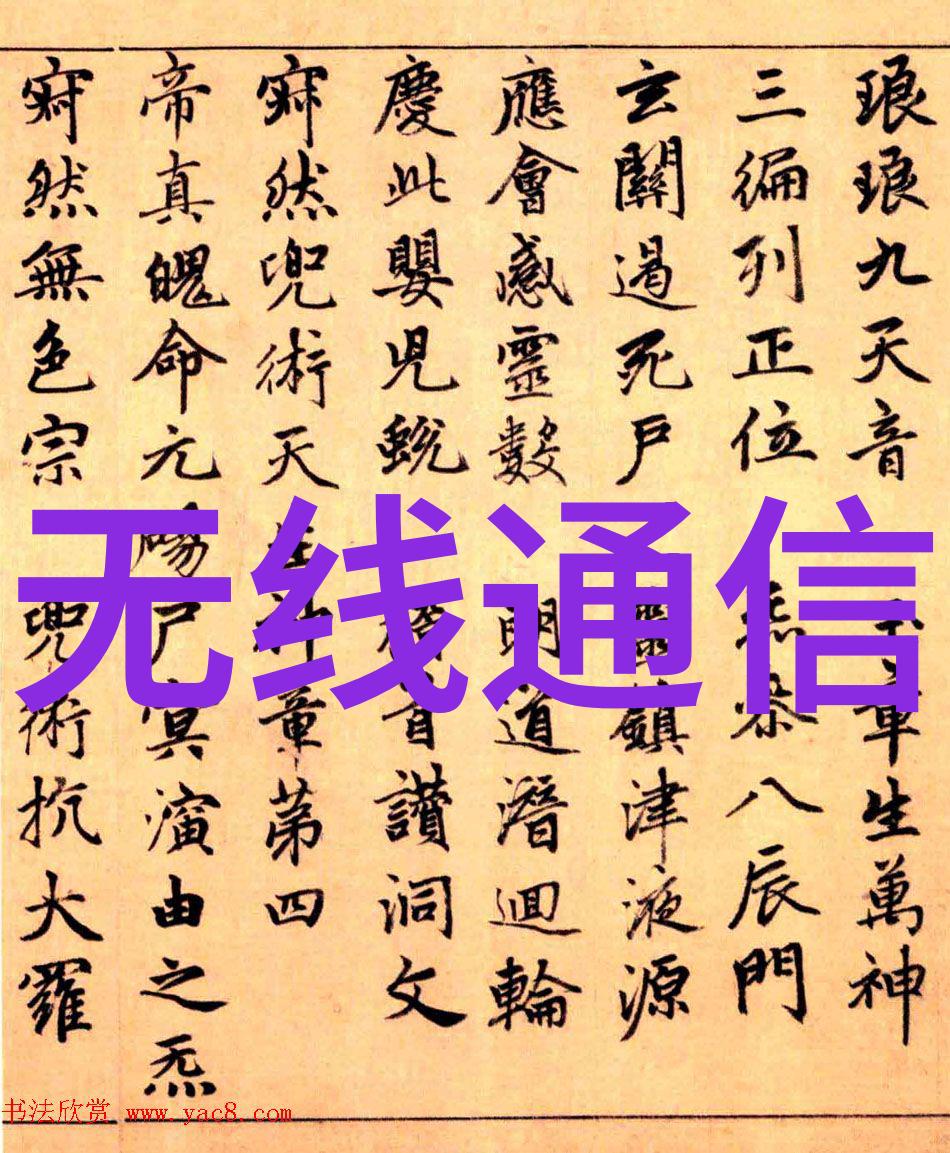 琅琅九天音 玉章生萬神
三編列正位 炁參八辰門
玄關遏死戶 靈鎮津液源
應會感靈數 明道潛迴輪
慶此嬰兒蛻 稽首讚洞文
寂然兜術天 章第四
帝真魄命元 陽尸冥演由之炁
寂然無色宗 兜術抗大羅
无线通信
书法欣赏 www.yac8.com